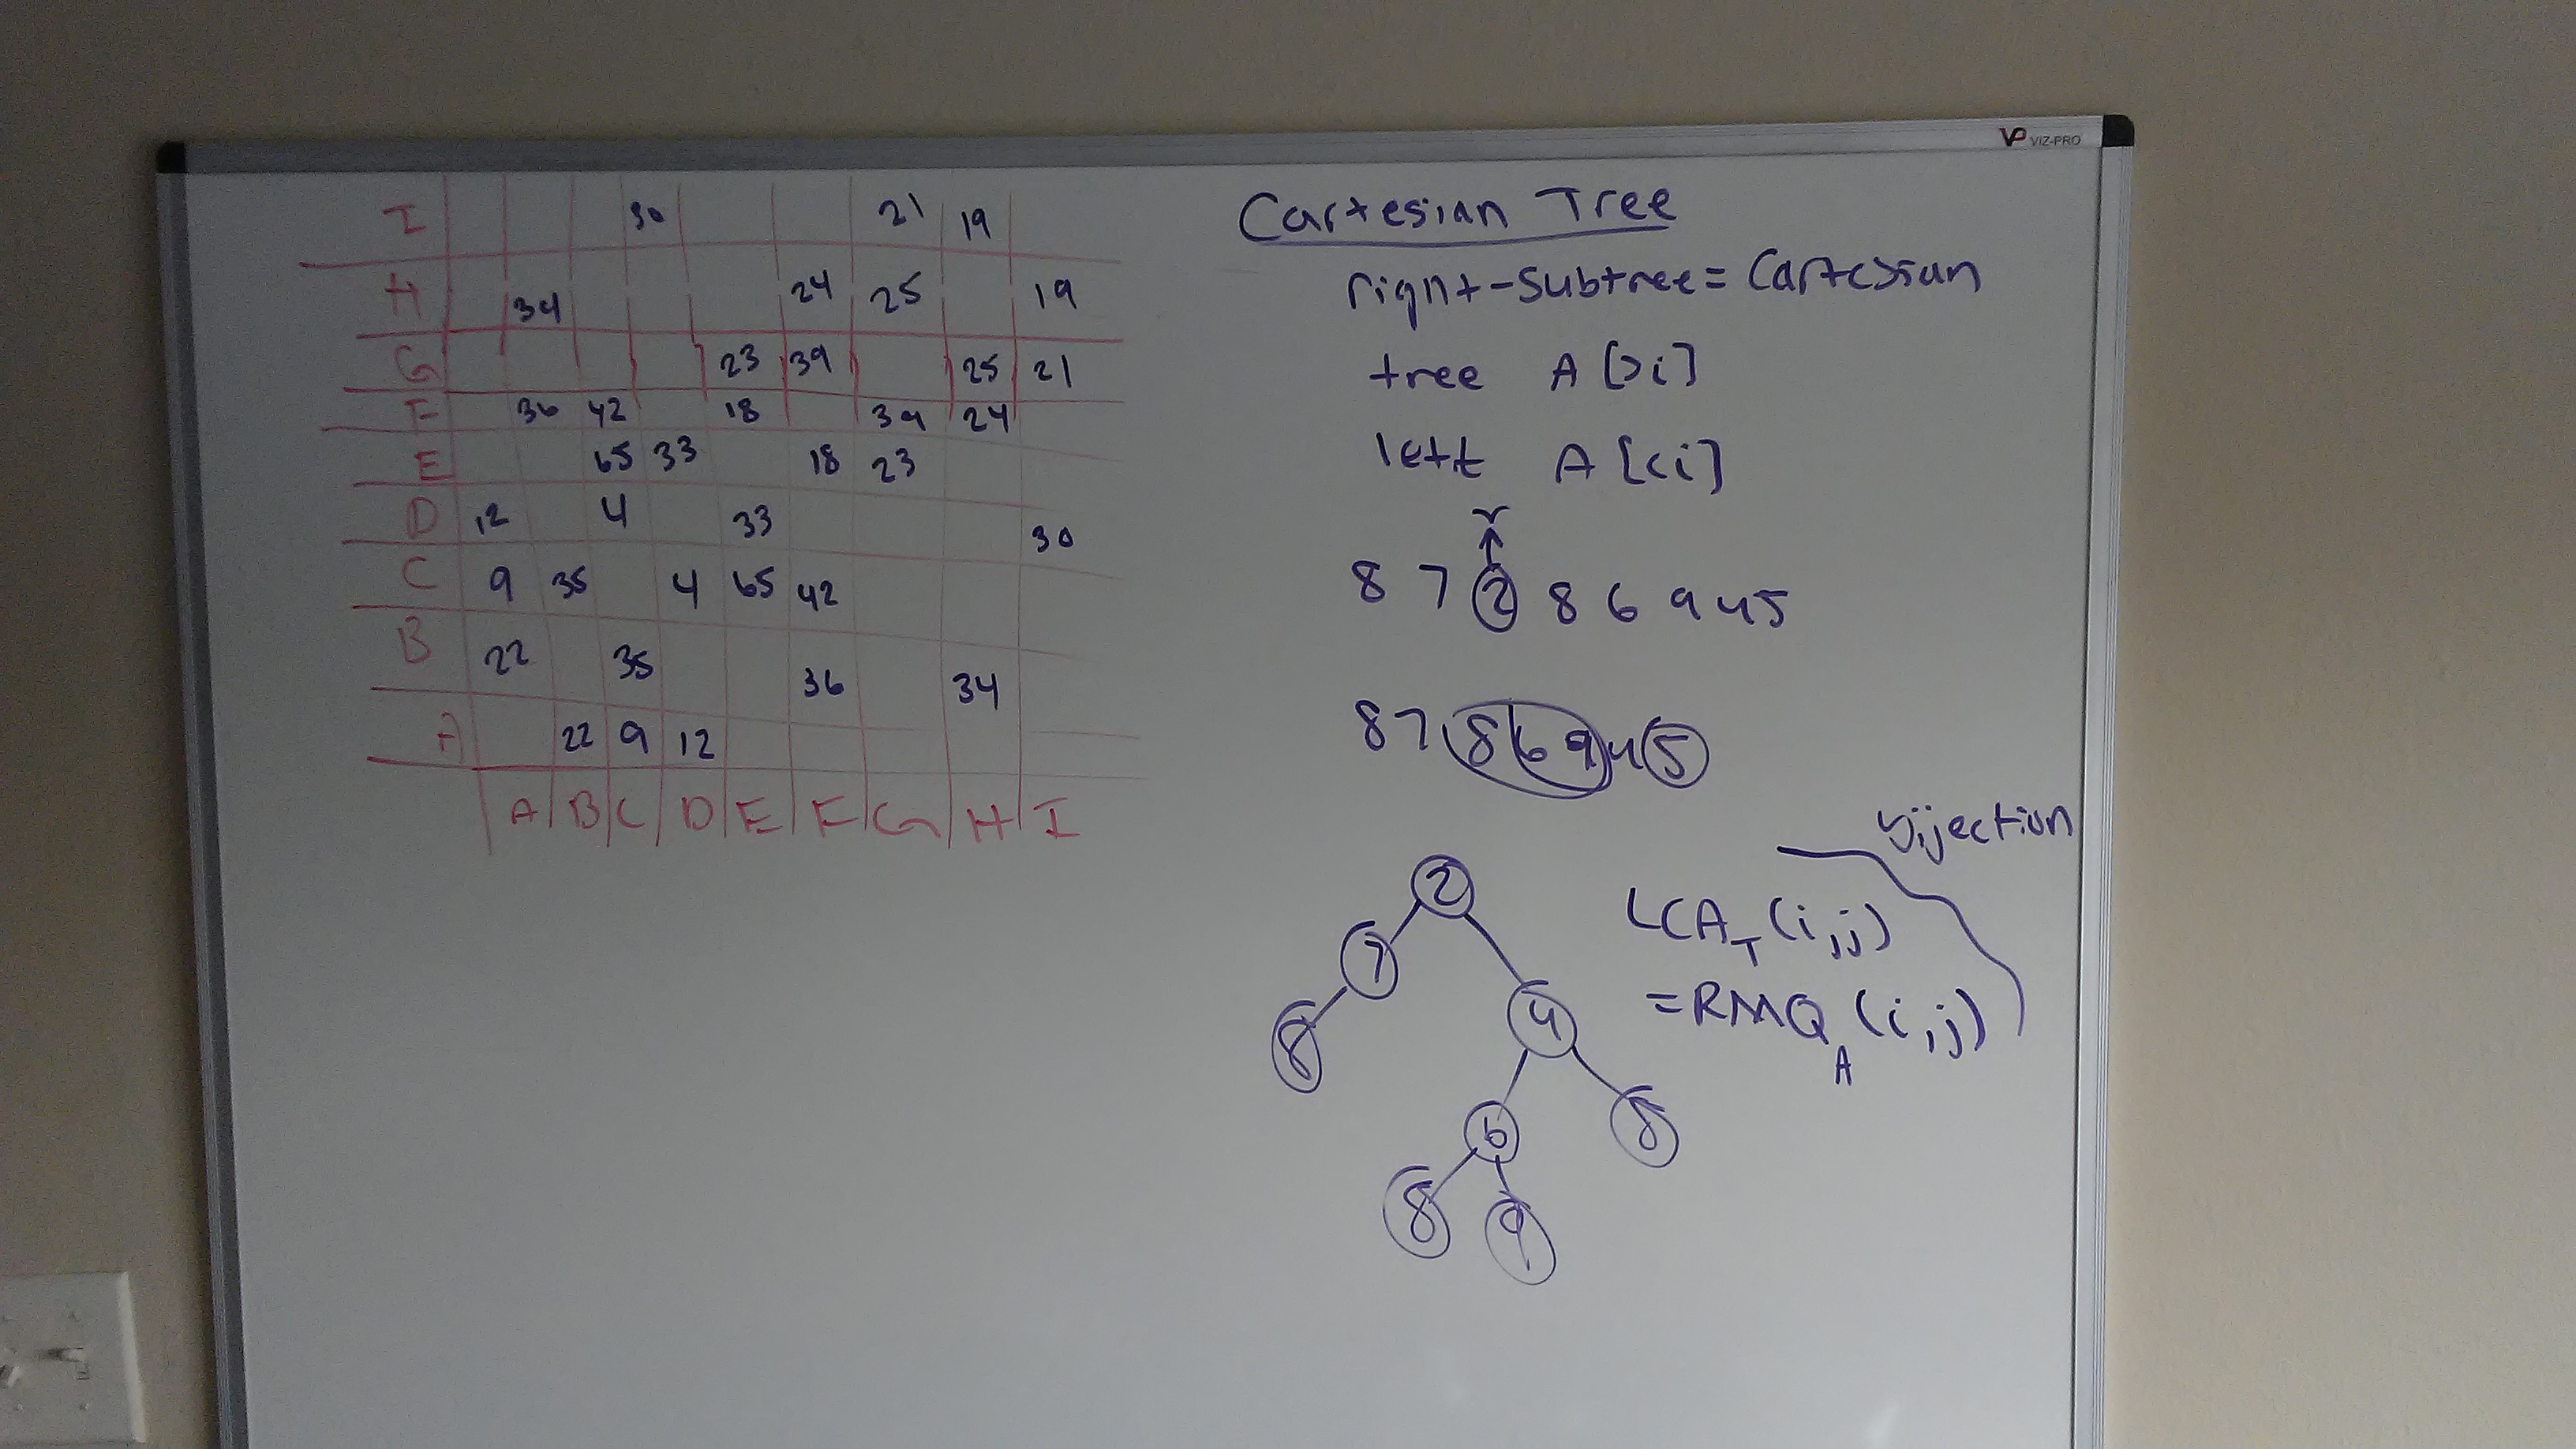 VP VIZ-PRO
I 30 21 19
H 34 24 25 19
G 23 39 25 21
F 36 42 18 39 24
E 65 33 18 23
D 12 4 33 30
C 9 35 4 65 42
B 22 35 36 34
A 22 9 12
A B C D E F G H I
Cartesian Tree
right-subtree = Cartesian
tree A [>i]
left A [<i]
r
8 7 2 8 6 9 4 5
8 7 8 6 9 4 5
bijection
LCA_T (i,j)
=RMQ_A (i,j)
2
7
8 4
6 5
8 9